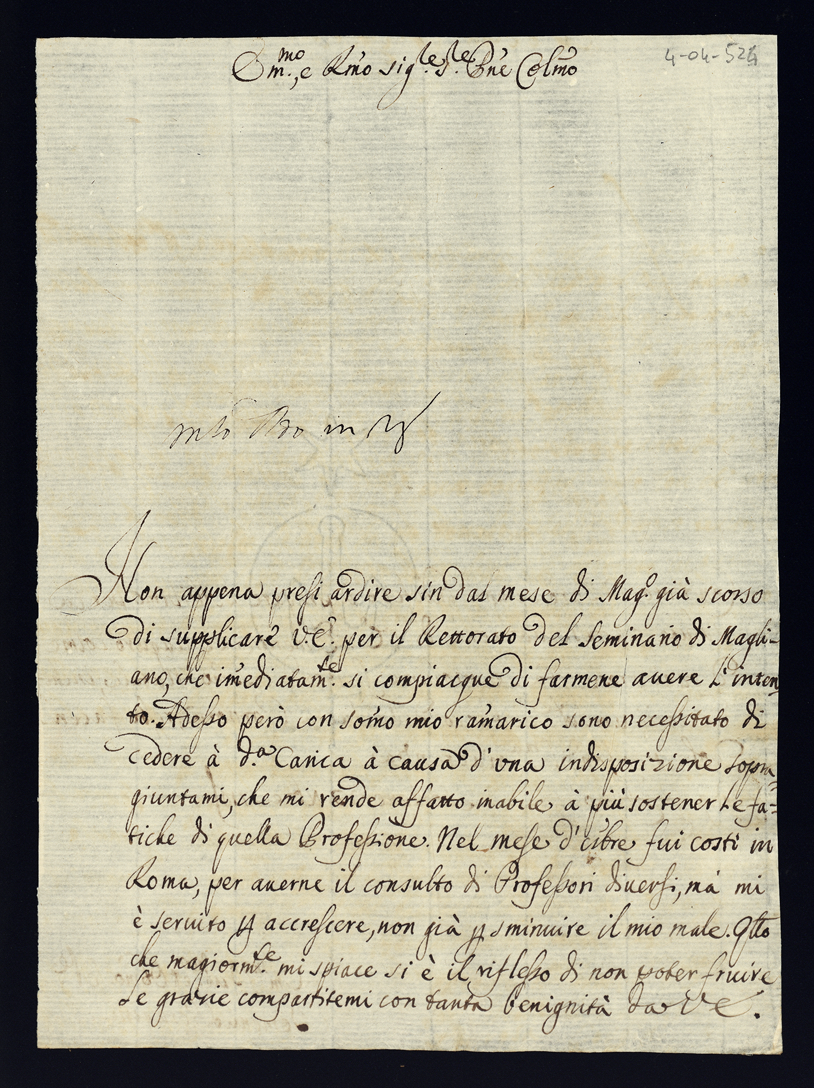 Em.mo, e Rmo Sig.re S.re Pne Colmo
4-04-524
Non appena presi ardire sin dal mese di Mag.o già scorso
di supplicare V. E. per il Rettorato del Seminario di Magli-
ano, che imediatam.te si compiacque di farmene avere l'inten
to. Adesso però con somo mio ramarico sono necessitato di
cedere à d.a Carica à causa d'una indisposizione sopra-
giuntami, che mi rende affatto inabile à più sostener le fa=
tiche di quella Professione. Nel mese d' fui costi in
Roma, per averne il consulto di Professori diversi, mà mi
è servito p accrescere, non già p sminuire il mio male. Qllo
che magiorm.te mi spiace si è il riflesso di non poter fruire
le grazie compartitemi con tanta benignità da V E.